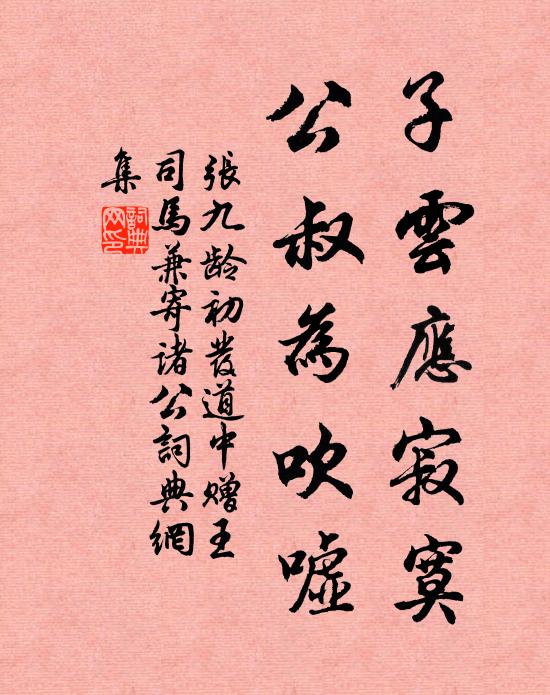 子雲應寂寞
公叔為吹噓
張九龄初發道中赠王
司馬兼寄诸公詞典網
集
詞典
网印